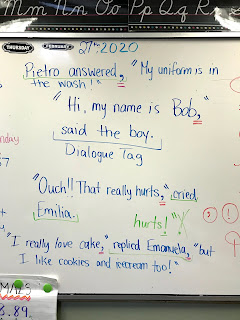 Mm Nn Oo Pp Qq Rr
THURSDAY FEBRUARY 27th 2020
Pietro answered, "My uniform is in
the wash!"
"Hi, my name is Bob,"
said the boy.
Dialogue Tag
"Ouch!! That really hurts," cried
Emilia.
hurts!"
"I really love cake," replied Emanuela, "but
I like cookies and icecream too!"
8.89.